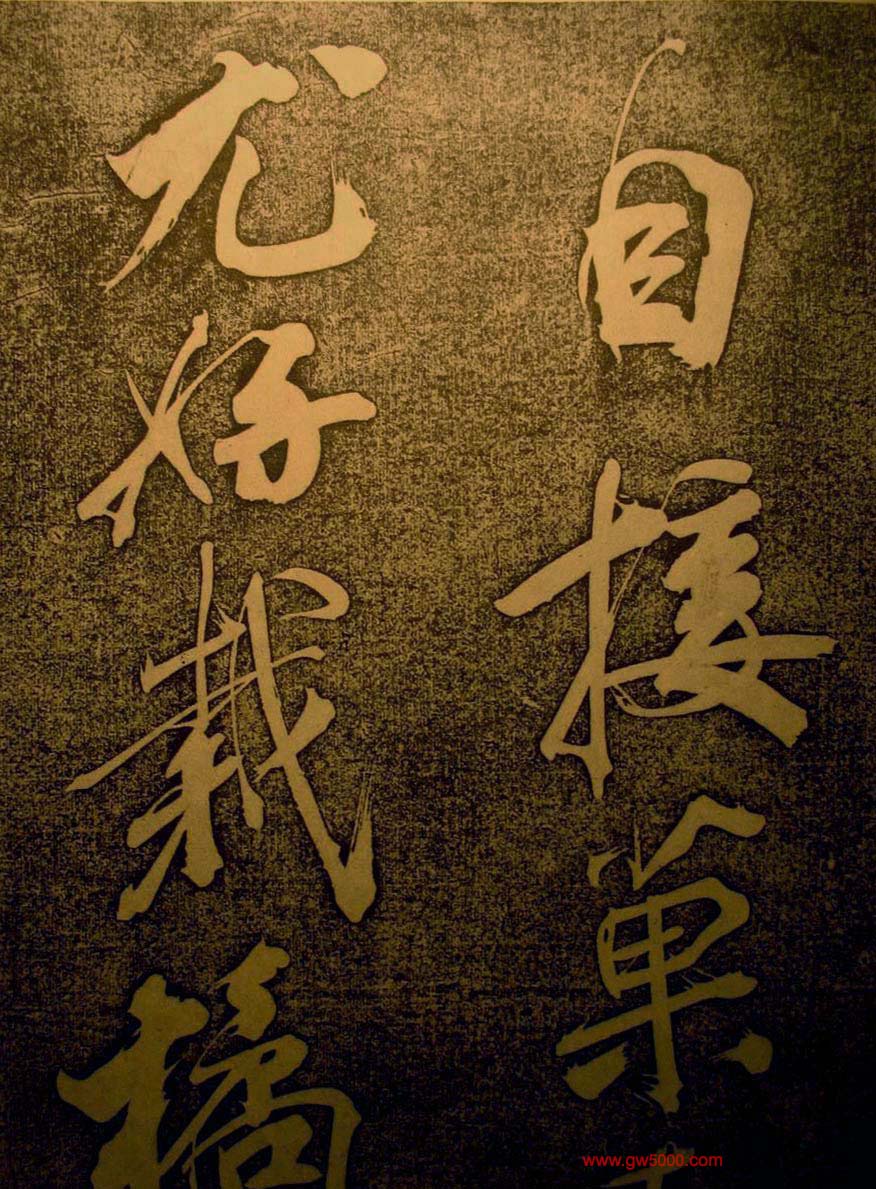 自接菓
尤好栽橘
www.gw5000.com